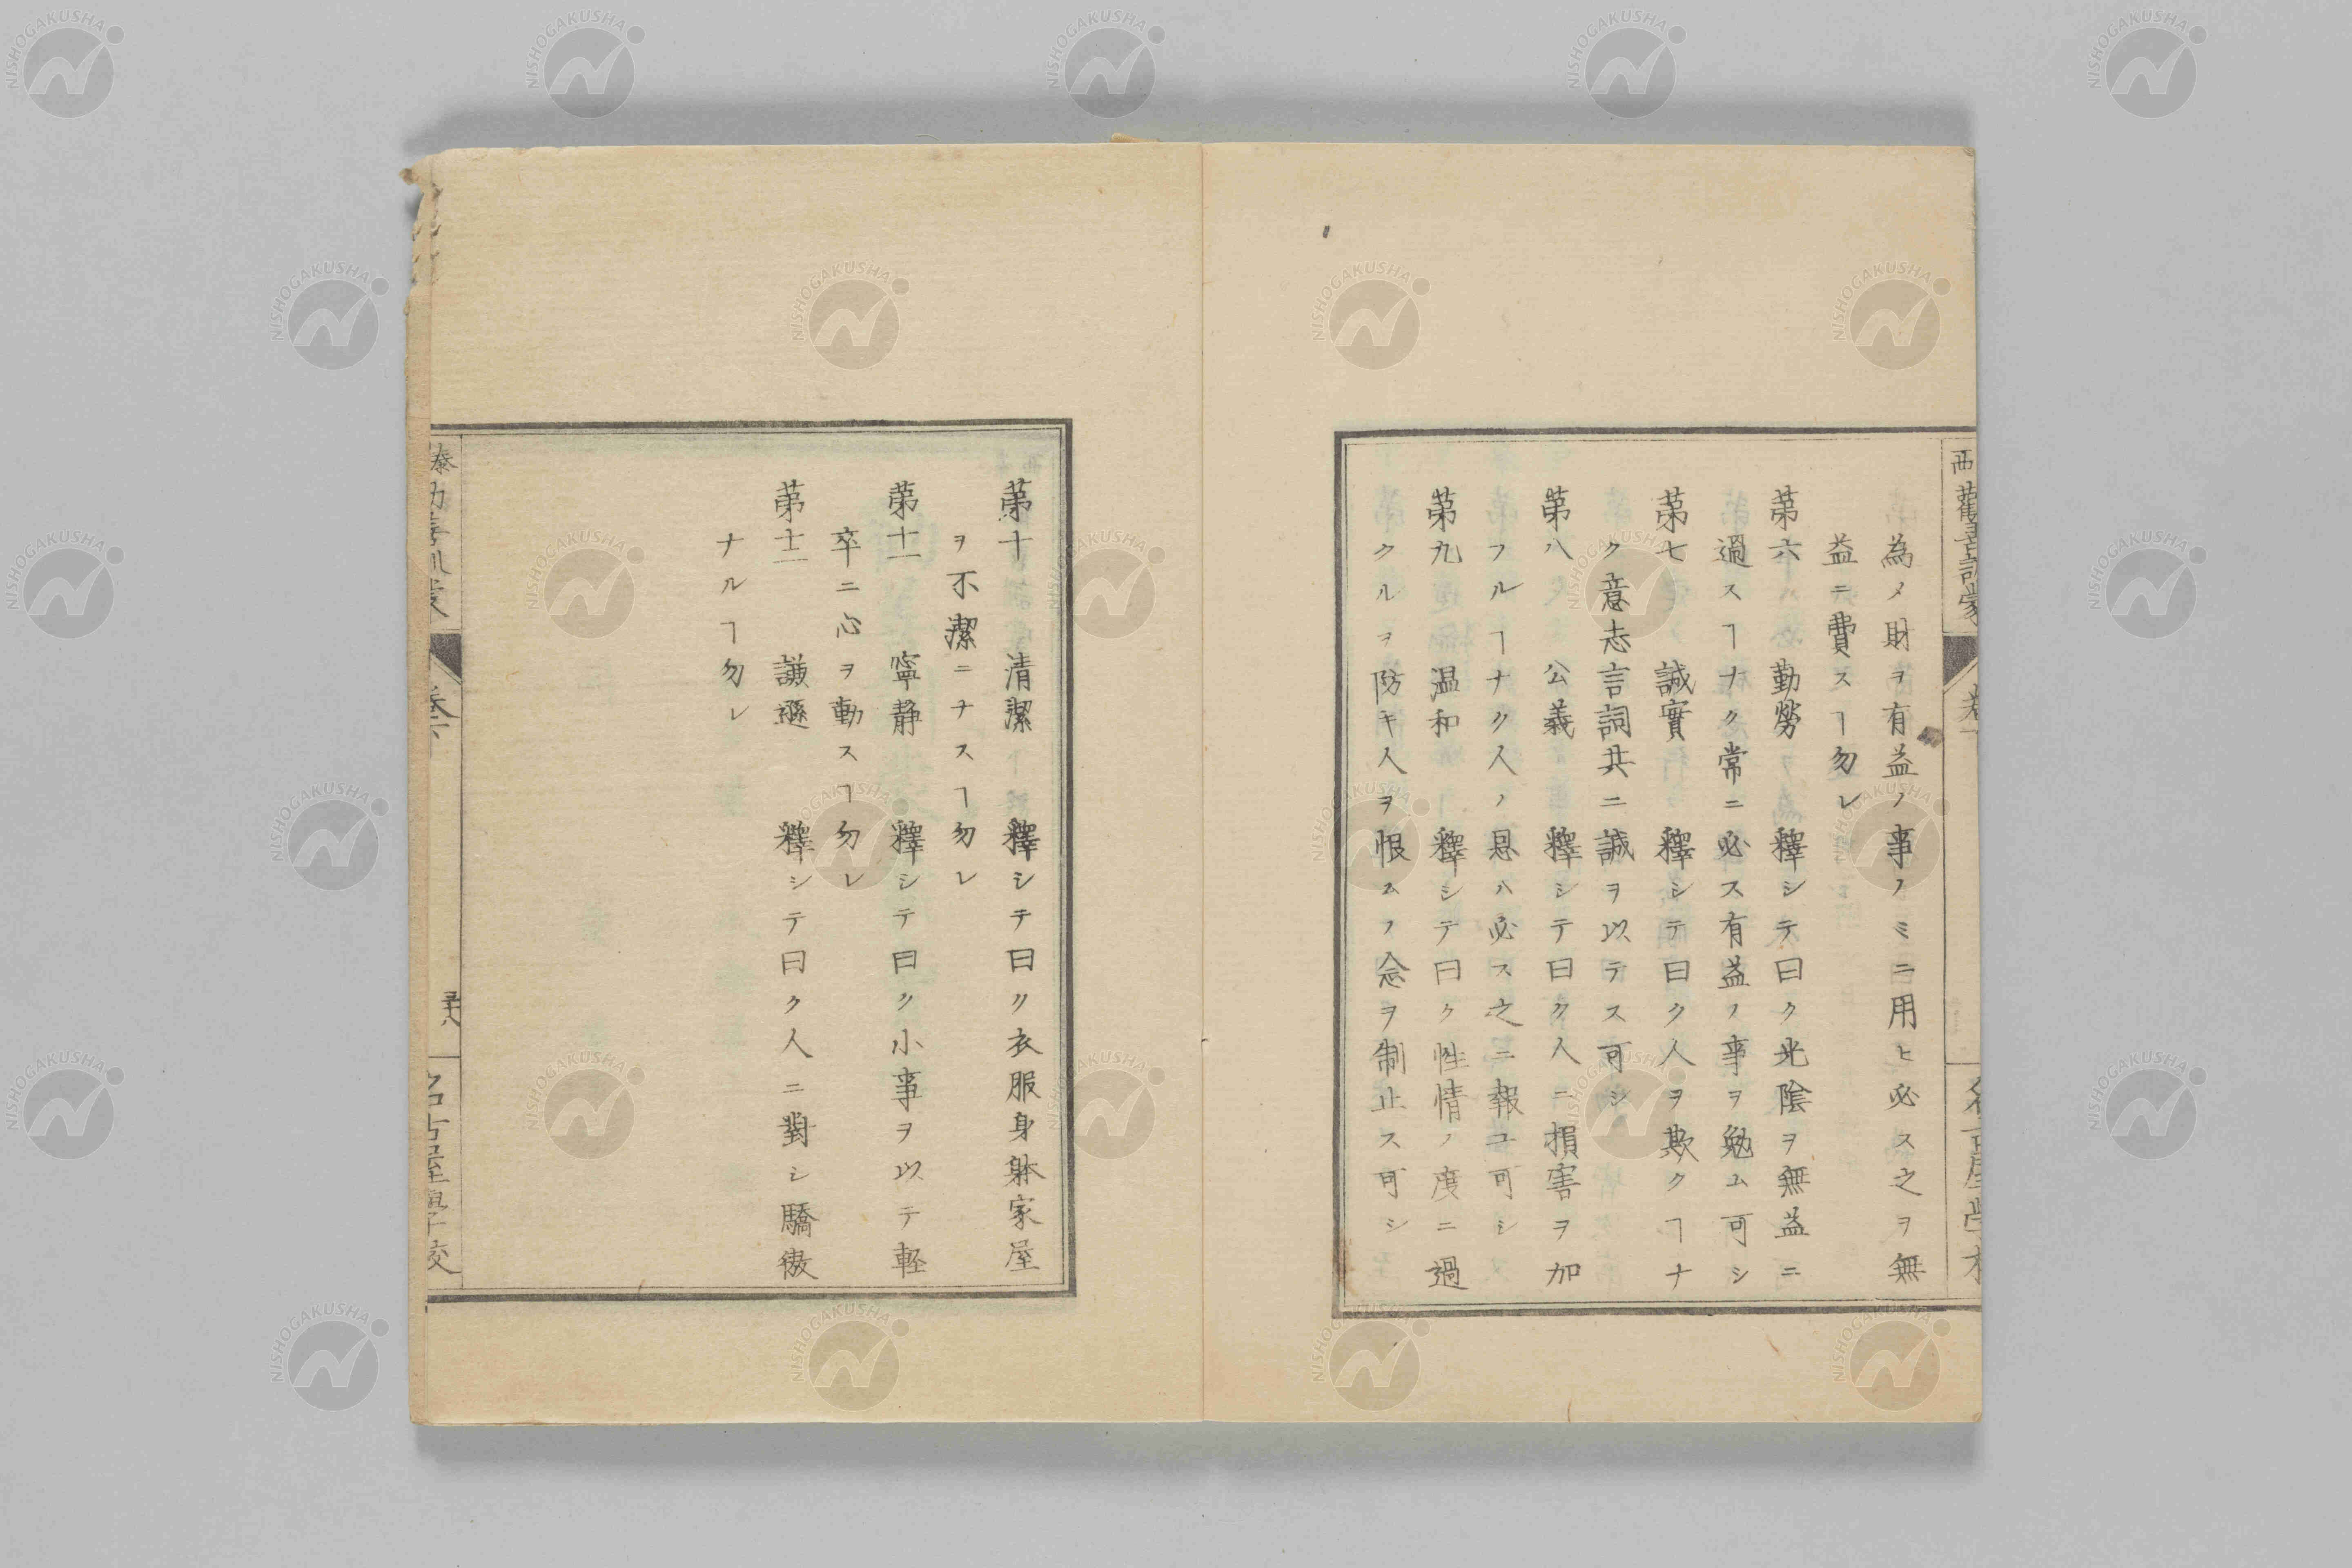 為メ財ヲ有益ノ事ノミニ用ヒ必ス之ヲ無
益ニ費スヿ勿レ
第六 勤勞 釋シテ曰ク光陰ヲ無益ニ
過スヿナク常ニ必ス有益ノ事ヲ勉ム可シ
第七 誠實 釋シテ曰ク人ヲ欺クヿナ
ク意志言詞共ニ誠ヲ以テス可シ
第八 公義 釋シテ曰ク人ニ損害ヲ加
フルヿナク人ノ恩ハ必ス之ニ報ユ可シ
第九 温和 釋シテ曰ク性情ノ度ニ過
クルヲ防キ人ヲ恨ムノ念ヲ制止ス可シ
第十 清潔 釋シテ曰ク衣服身躰家屋
ヲ不潔ニナスヿ勿レ
第十一 寧静 釋シテ曰ク小事ヲ以テ軽
卒ニ心ヲ動スヿ勿レ
第十二 謙遜 釋シテ曰ク人ニ對シ驕傲
ナルヿ勿レ
名古屋學校
NISHOGAKUSHA